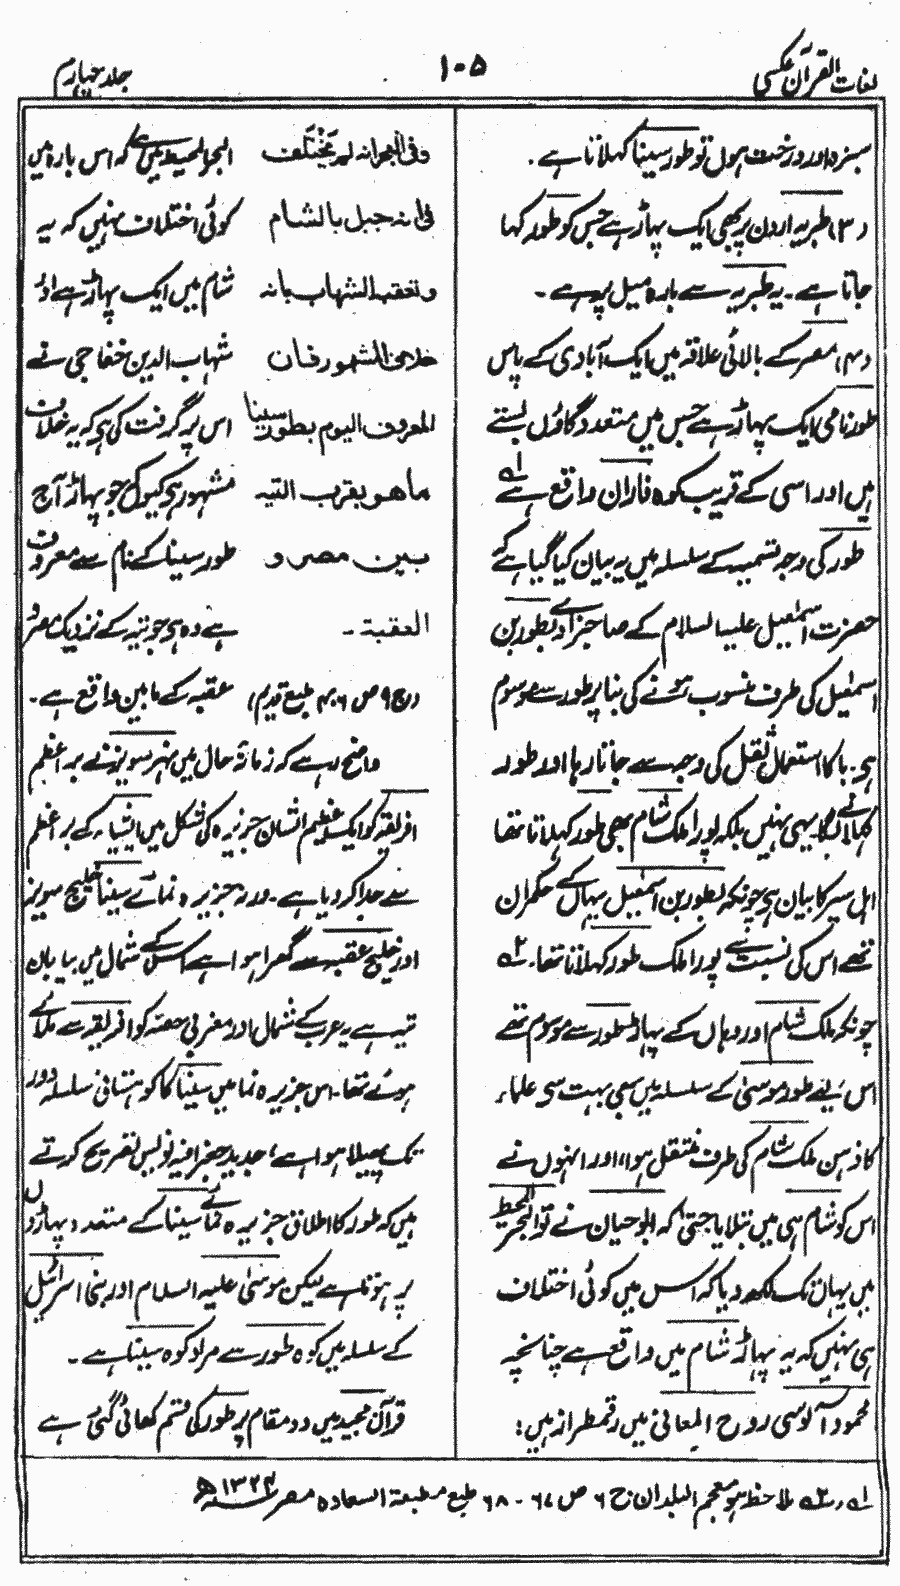 لغات القرآن عکسی
۱۰۵
جلد چہارم
سبزہ اور درخت ہوں تو طور سینا کہلاتا ہے.
(۳) طبریہ اردن پر بھی ایک پہاڑ ہے جس کو طور کہا
جاتا ہے۔ یہ طبریہ سے بارہ میل پر ہے۔
(۴) مصر کے بالائی علاقہ میں ایک آبادی کے پاس
طور نامی ایک پہاڑ ہے جس میں متعدد گاؤں بستے
ہیں اور اسی کے قریب کوہ فاران واقع ہے لہ
طور کی وجہ تسمیہ کے سلسلہ میں یہ بیان کیا گیا ہے کہ
حضرت اسمٰعیل علیہ السلام کے صاحبزادے بطور بن
اسمٰعیل کی طرف منسوب ہونے کی بنا پر طور سے موسوم
ہے۔ با کا استعمال ثقل کی وجہ سے جاتا رہا اور طور
کہلانے لگا یہی نہیں بلکہ پورا ملک شام بھی طور کہلاتا تھا
اہل سیر کا بیان ہے چونکہ بطور بن اسمٰعیل یہاں کے حکمران
تھے اس کی نسبت سے پورا ملک طور کہلاتا تھا۔ ۲ہ
چونکہ ملک شام اور وہاں کے پہاڑ طور سے موسوم تھے
اس لیے طور موسیٰ کے سلسلہ میں بھی بہت سے علماء
کا ذہن ملک شام کی طرف منتقل ہوا، اور انہوں نے
اس کو شام ہی میں بتلایا حتیٰ کہ ابو حیان نے تو البحر المحیط
میں یہاں تک لکھ دیا کہ اس میں کوئی اختلاف
ہی نہیں کہ یہ پہاڑ شام میں واقع ہے چنانچہ
محمود آلوسی روح المعانی میں رقمطراز ہیں:
وفی البحر انہ لم یختلف
فی انہ جبل بالشام
وتعقب الشهاب بانہ
خلاف المشہور فان
المعروف الیوم بطور سینا
ماھو بقرب التیہ
بین مصر و
العقبۃ ۔
(ج ۹ ص ۴۰۶ طبع قدیم)
البحر المحیط میں ہے کہ اس بارہ میں
کوئی اختلاف نہیں کہ یہ
شام میں ایک پہاڑ ہے اور
شہاب الدین خفاجی نے
اس پر گرفت کی ہے کہ یہ خلاف
مشہور ہے کیوں کہ جو پہاڑ آج
طور سینا کے نام سے معروف
ہے وہ ہے جو تیہ کے نزدیک مصر و
عقبہ کے مابین واقع ہے.
واضح رہے کہ زمانۂ حال میں نہر سویز نے بر اعظم
افریقہ کو ایک عظیم الشان جزیرہ کی شکل میں ایشیاء کے بر اعظم
سے جدا کر دیا ہے۔ ورنہ جزیرہ نمائے سینا خلیج سویز
اور خلیج عقبہ سے گھرا ہوا ہے اس کے شمال میں بیابان
تیہ ہے یہ عرب کے شمال اور مغربی حصہ کو افریقہ سے ملائے
ہوئے تھا۔ اس جزیرہ نما میں سینا کا کوہستانی سلسلہ دور
تک پھیلا ہوا ہے، جدید جغرافیہ نویس تصریح کرتے
ہیں کہ طور کا اطلاق جزیرہ نمائے سینا کے متعدد پہاڑوں
پر ہوتا ہے لیکن موسیٰ علیہ السلام اور بنی اسرائیل
کے سلسلہ میں کوہ طور سے مراد کوہ سینا ہے۔
قرآن مجید میں دو مقام پر طور کی قسم کھائی گئی ہے
لہ و ۲ہ ملاحظہ ہو معجم البلدان ج ۶ ص ۶۷ - ۶۸ طبع مطبعۃ السعادہ مصر ۱۳۲۴ھ